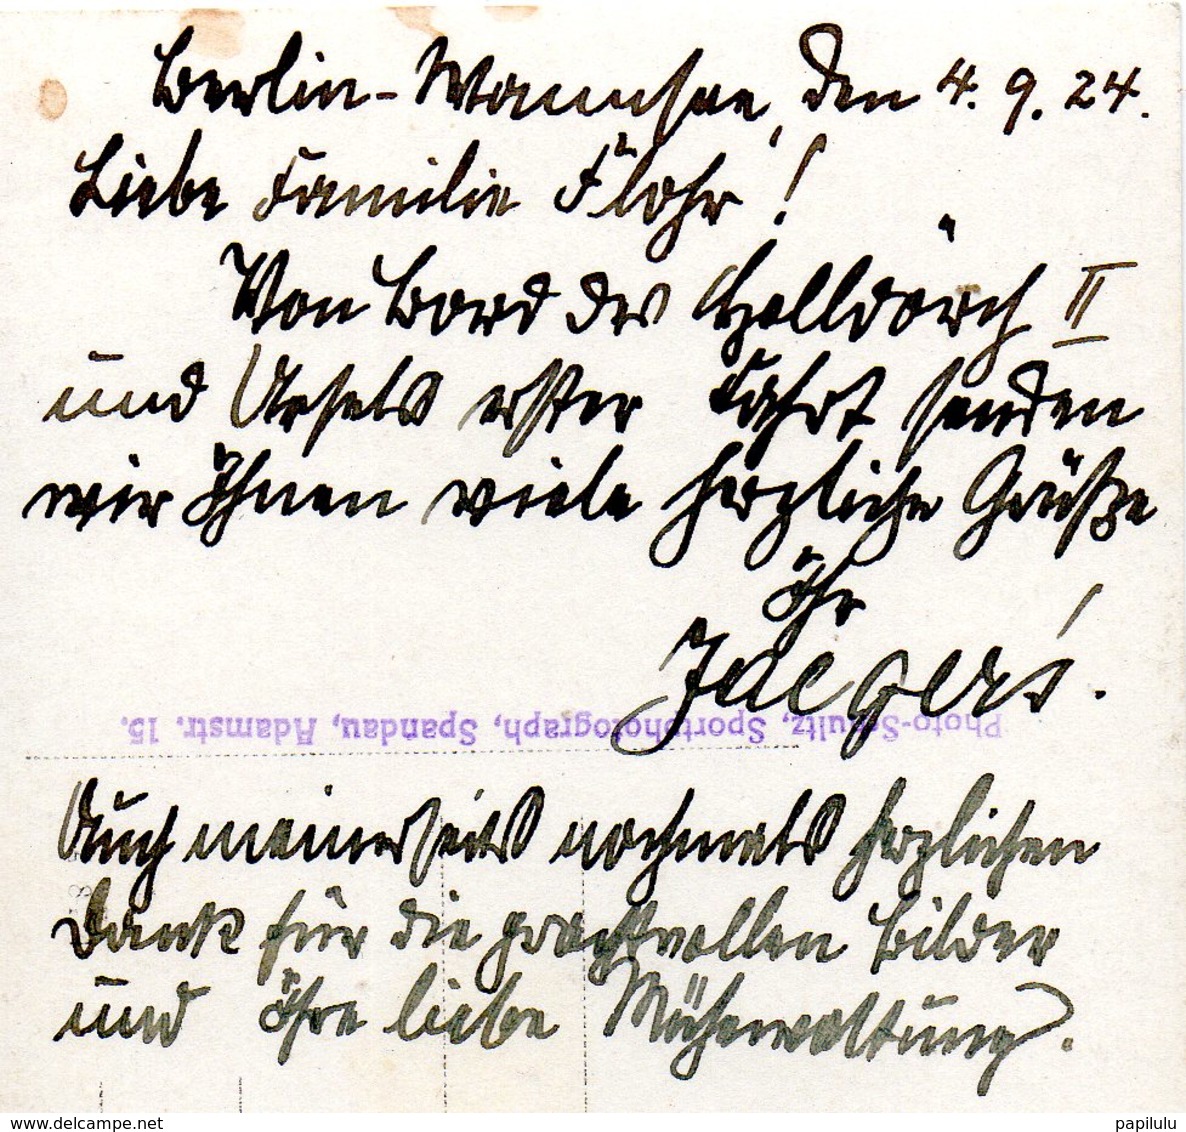 Berlin-Wannsee, den 4. 9. 24.
Liebe Familie Flohr!
Von Bord des II
und erster Fahrt senden
wir Ihnen viele herzliche Grüße
Ihr
Jaegers.
Photo-Schultz, Sportphotograph, Spandau, Adamstr. 15.
Auch meinerseits nochmals herzlichen
Dank für die prachtvollen Bilder
und Ihre liebe Mühewaltung.
delcampe.net
papilulu